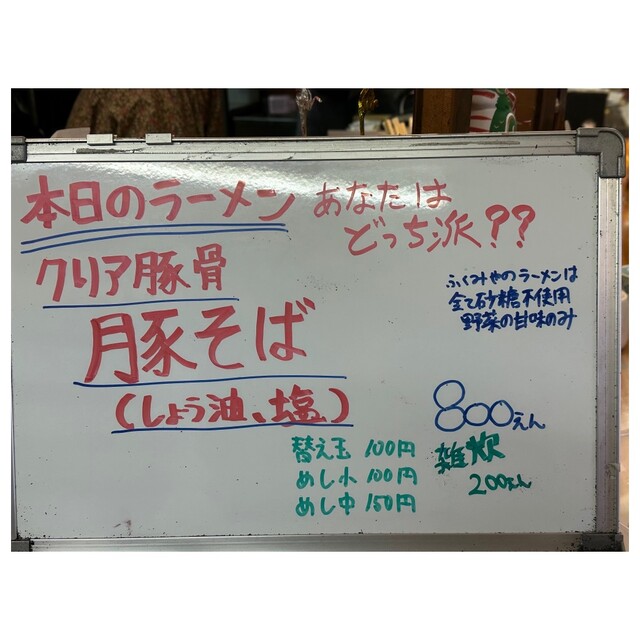 本日のラーメン
あなたは
どっち派??
クリア豚骨
豚そば
(しょう油、塩)
ふくみやのラーメンは
全て砂糖不使用
野菜の甘味のみ
800えん
替え玉 100円
めし小 100円
めし中 150円
雑炊
200えん